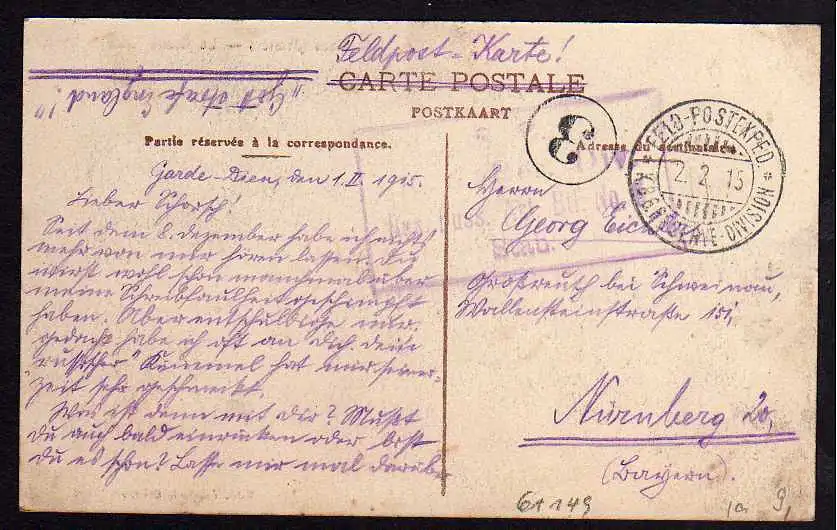 Feldpost-Karte!
CARTE POSTALE
POSTKAART
"Gott strafe England"!
Partie réservée à la correspondance.
Adresse du destinataire
3
FELD-POSTEXPED.
2. 2. 15
DIVISION
Garde-Dieu, den 1. II. 1915.
Lieber Schorsch!
Seit dem 8. Dezember habe ich nichts
mehr von mir hören lassen. Du
wirst wohl schon manchmal über
meine Schreibfaulheit geschimpft
haben. Aber entschuldige nur,
gedacht habe ich oft an Dich, dein
"russischer" Kümmel hat mir seiner-
zeit sehr geschmeckt.
Was ist denn mit Dir? Mußt
Du auch bald einrücken oder bist
Du es schon? Lasse mir mal darüber
Herrn
Georg
Großreuth bei Schweinau,
Wallensteinstraße 151,
Nürnberg 20,
(Bayern).
6+149
9,